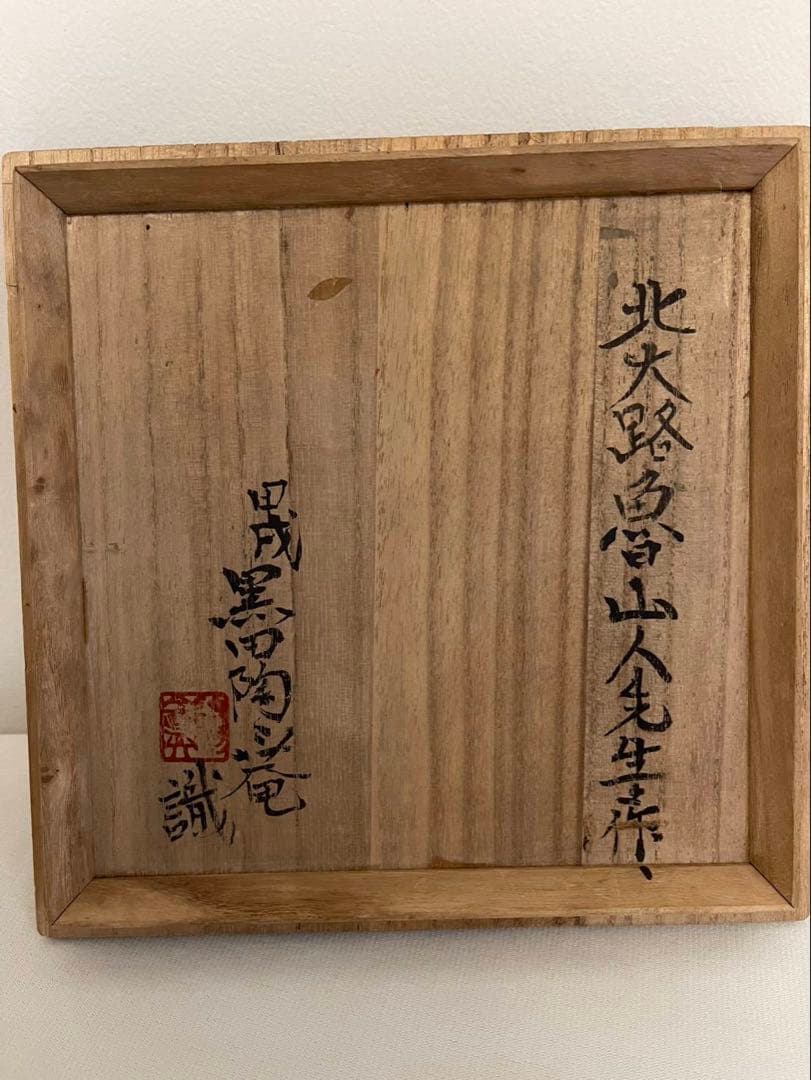 北大路魯山人先生作、
甲戌 黒田陶々庵
識